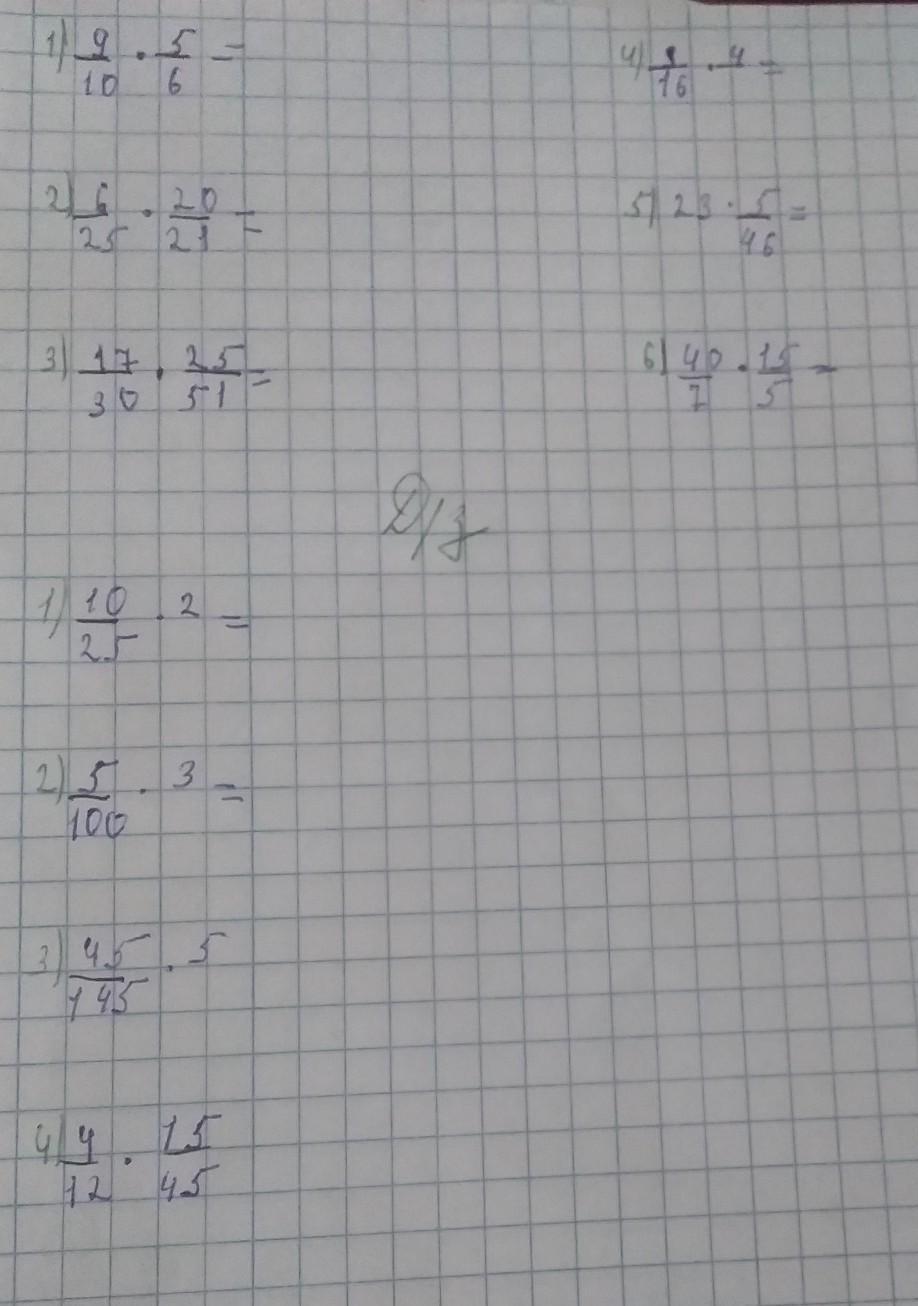 1) 9/10 · 5/6 =
4) 1/16 · 4 =
2) 6/25 · 20/21 =
5) 23 · 5/46 =
3) 17/30 · 25/51 =
6) 40/7 · 15/5 =
Д/з
1) 10/25 · 2 =
2) 5/100 · 3 =
3) 45/145 · 5
4) 4/12 · 15/45